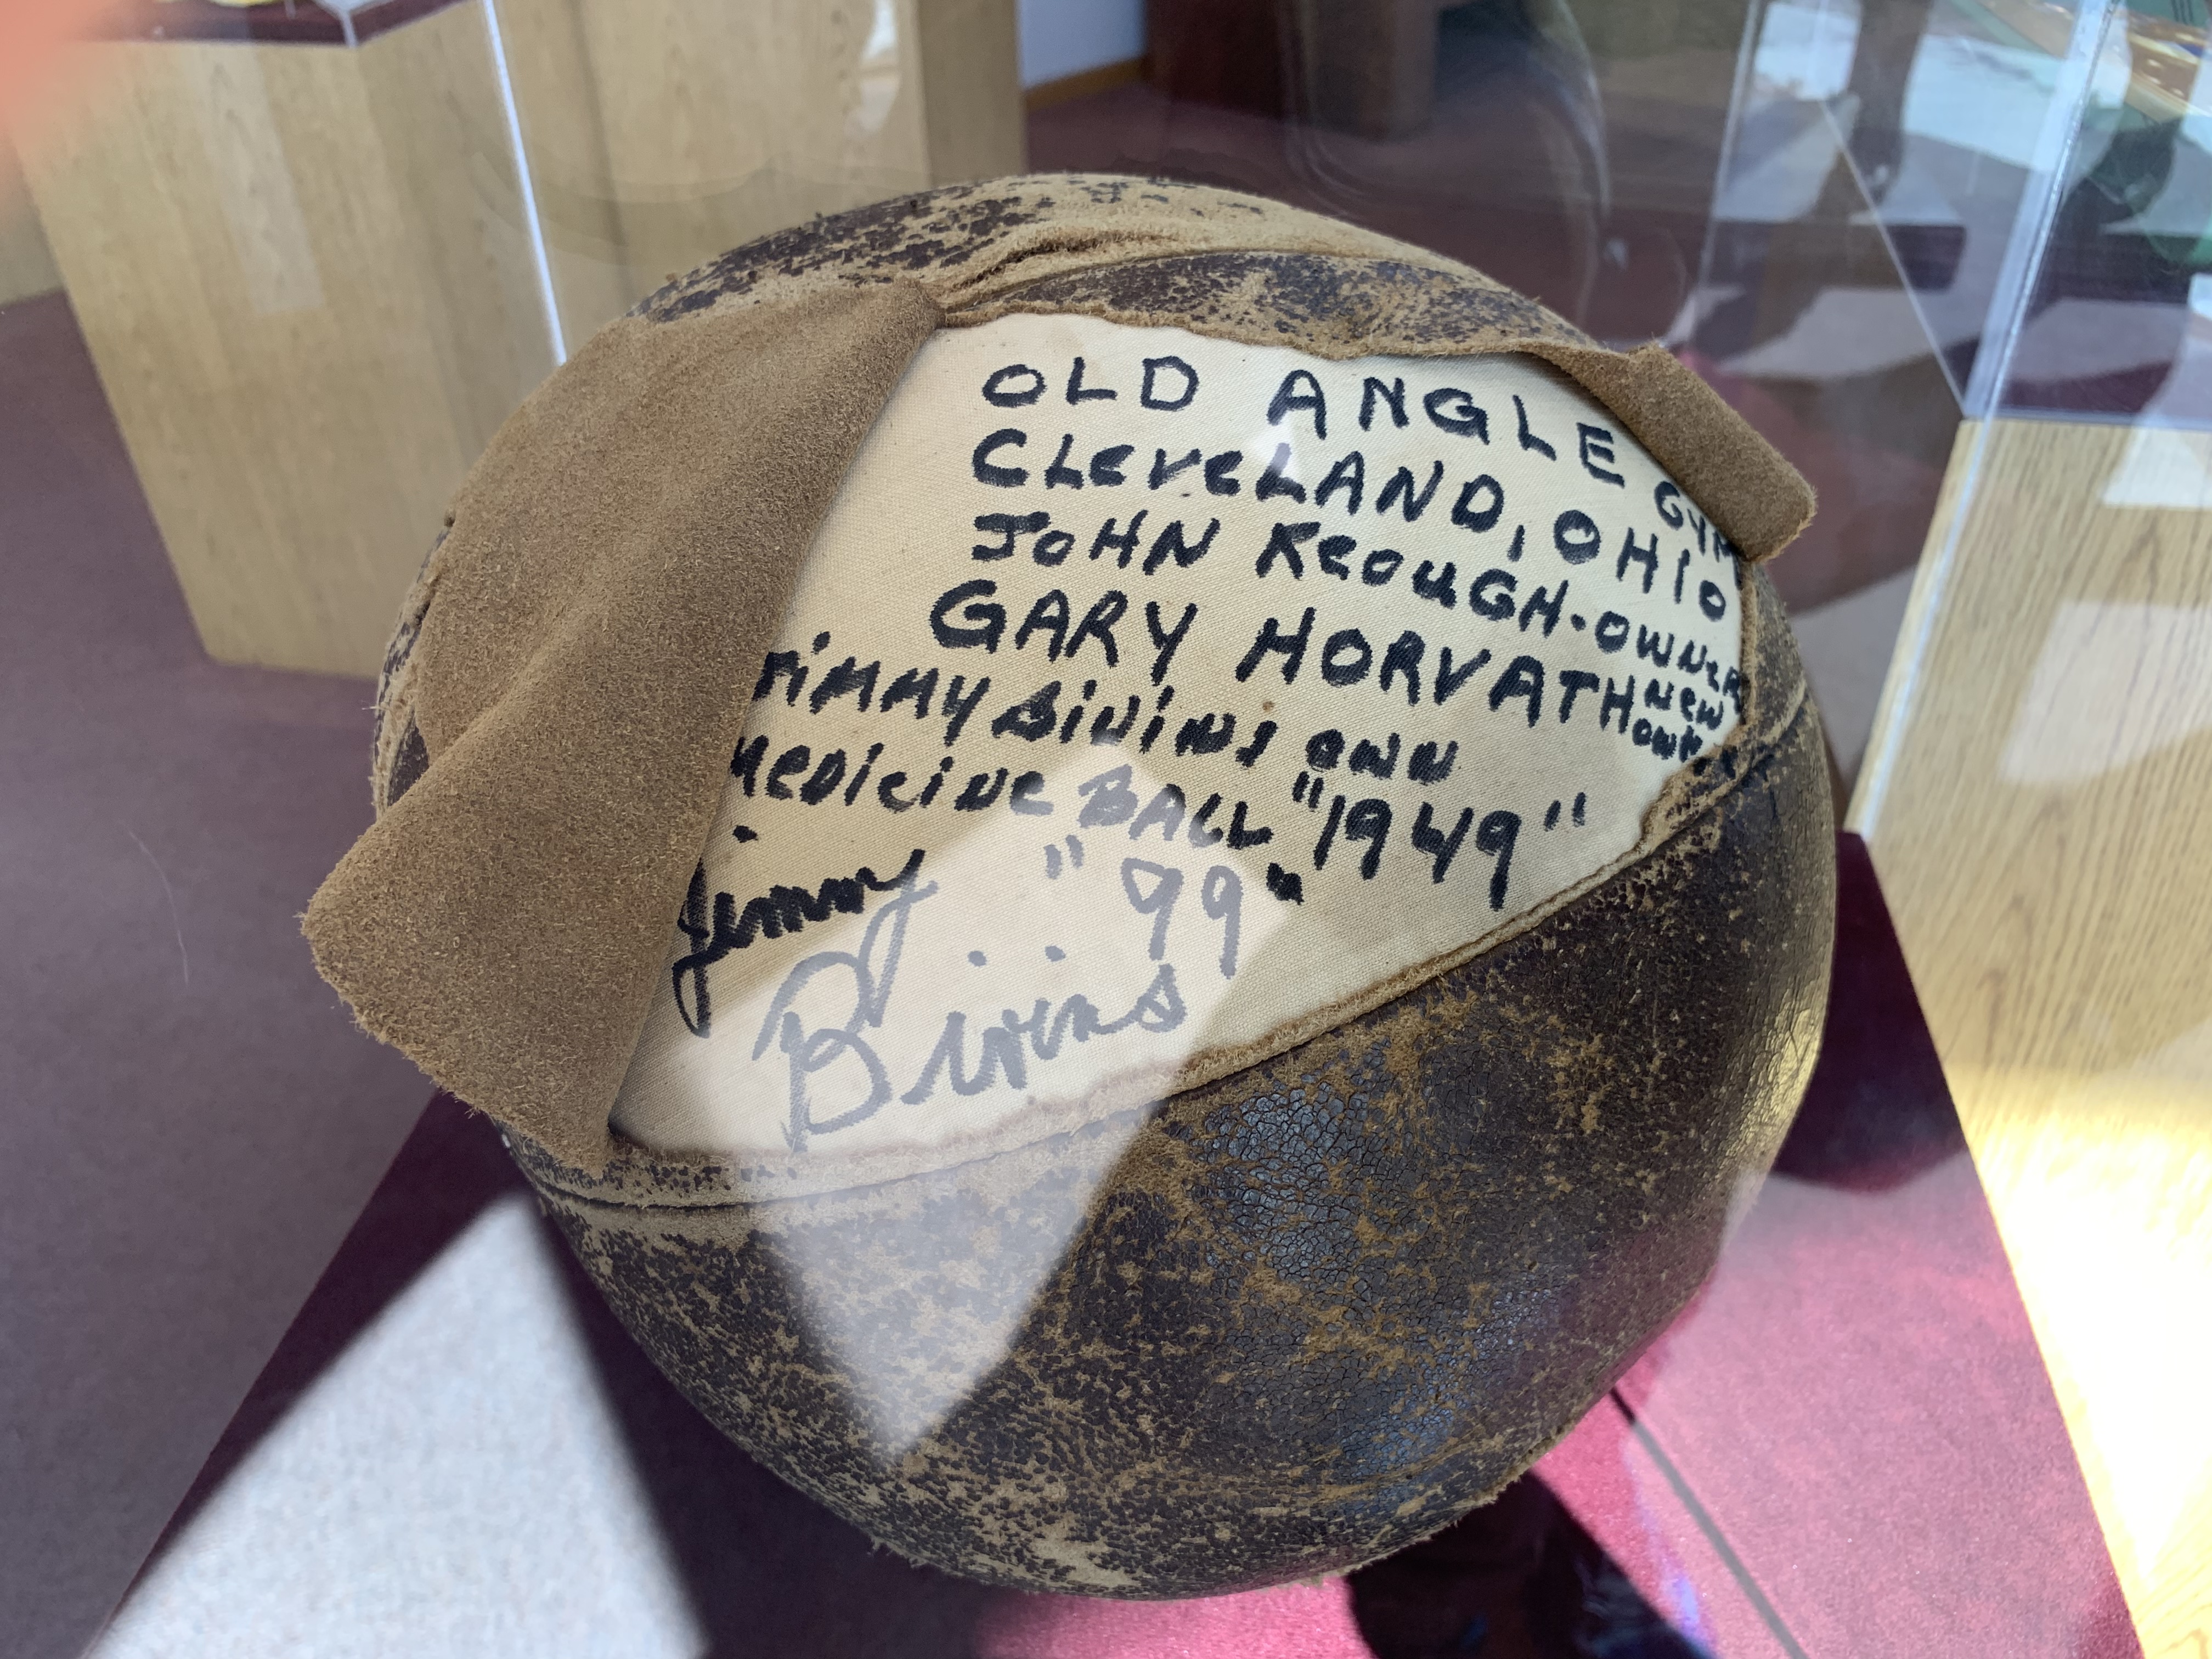 OLD ANGLE GYM
CLeveLAND, OHIO
JOHN KEOUGH-OWNER
GARY HORVATH NEW OWNER
JiMMY BiViNS OWN
MEDiCiNE BALL "1949"
Jimmy "99"
Bivins